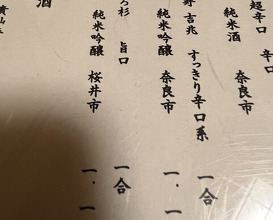 超辛口 辛口
純米酒 奈良市
吉兆 すっきり辛口系 一合
純米吟醸 奈良市 一.一
杉 旨口 一合
純米吟醸 桜井市 一.一
酒